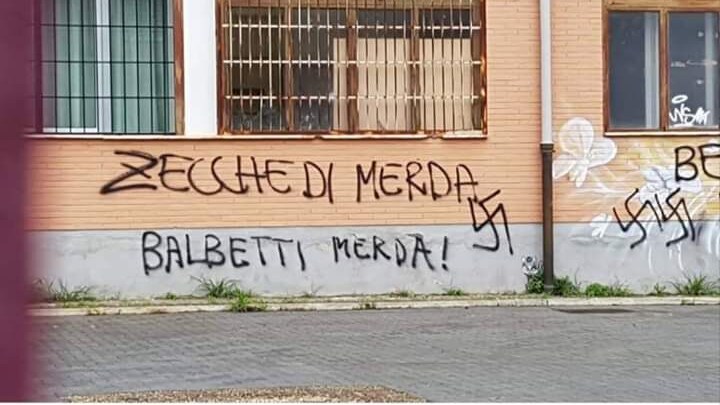 ZECCHE DI MERDA
BALBETTI MERDA!
BE